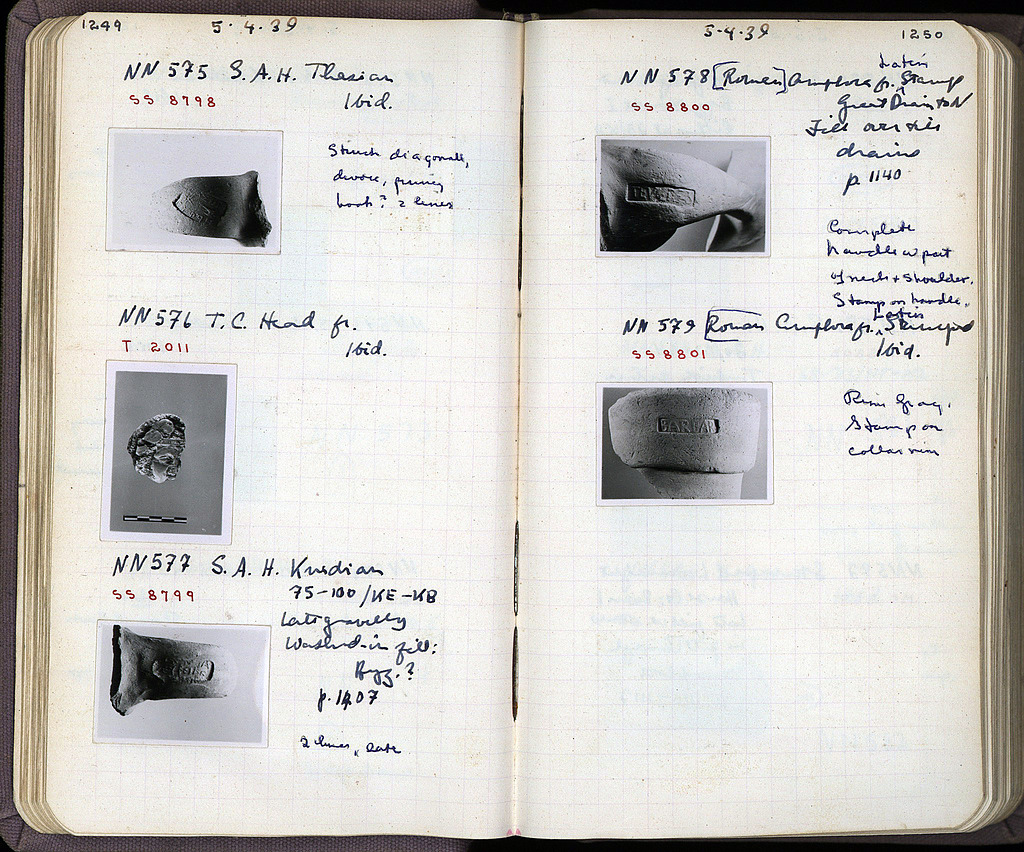 1249 5·4·39
NN 575 S.A.H. Thasian
SS 8798 Ibid.
Struck diagonally,
device, pruning
hook? 2 lines
NN 576 T.C. Head fr.
T 2011 Ibid.
NN 577 S.A.H. Knidian
SS 8799 75-100/ΚΕ-ΚΒ
Late gravelly
Washed-in fill:
Byz.?
p. 1207
2 lines, late
5-4-39 1250
Latin
NN 578 [Roman] Amphora fr. Stamp
SS 8800 Great Drain to N
Fill over tile
drains
p. 1140
Complete
handle w part
of neck + shoulder.
Stamp on handle.
Latin
NN 579 [Roman Amphora fr. Stamped
SS 8801 Ibid.
Rim frag.
Stamp on
collar rim
BARBAR